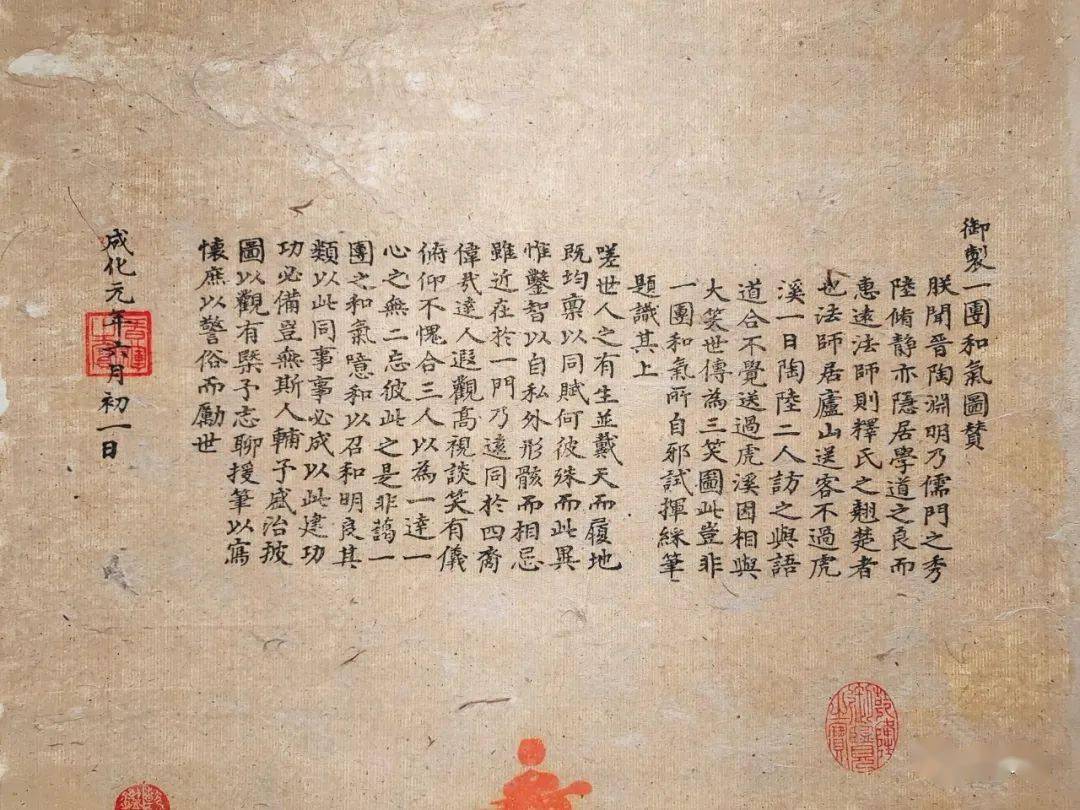 御製一團和氣圖贊
朕聞晉陶淵明乃儒門之秀
陸脩靜亦隱居學道之良而
惠遠法師則釋氏之翹楚者
也法師居廬山送客不過虎
溪一日陶陸二人訪之與語
道合不覺送過虎溪因相與
大笑世傳為三笑圖此豈非
一團和氣所自邪試揮綵筆
題識其上
嗟世人之有生並戴天而履地
既均禀以同賦何彼殊而此異
惟鑿智以自私外形骸而相忌
雖近在於一門乃遠同於四裔
偉哉達人遐觀高視談笑有儀
俯仰不愧合三人以為一達一
心之無二忘彼此之是非藹一
團之和氣噫和以召和明良其
類以此同事事必成以此建功
功必備豈無斯人輔予盛治披
圖以觀有槩予志聊援筆以寫
懷庶以警俗而勵世
成化元年六月初一日
乾隆御覽之寶